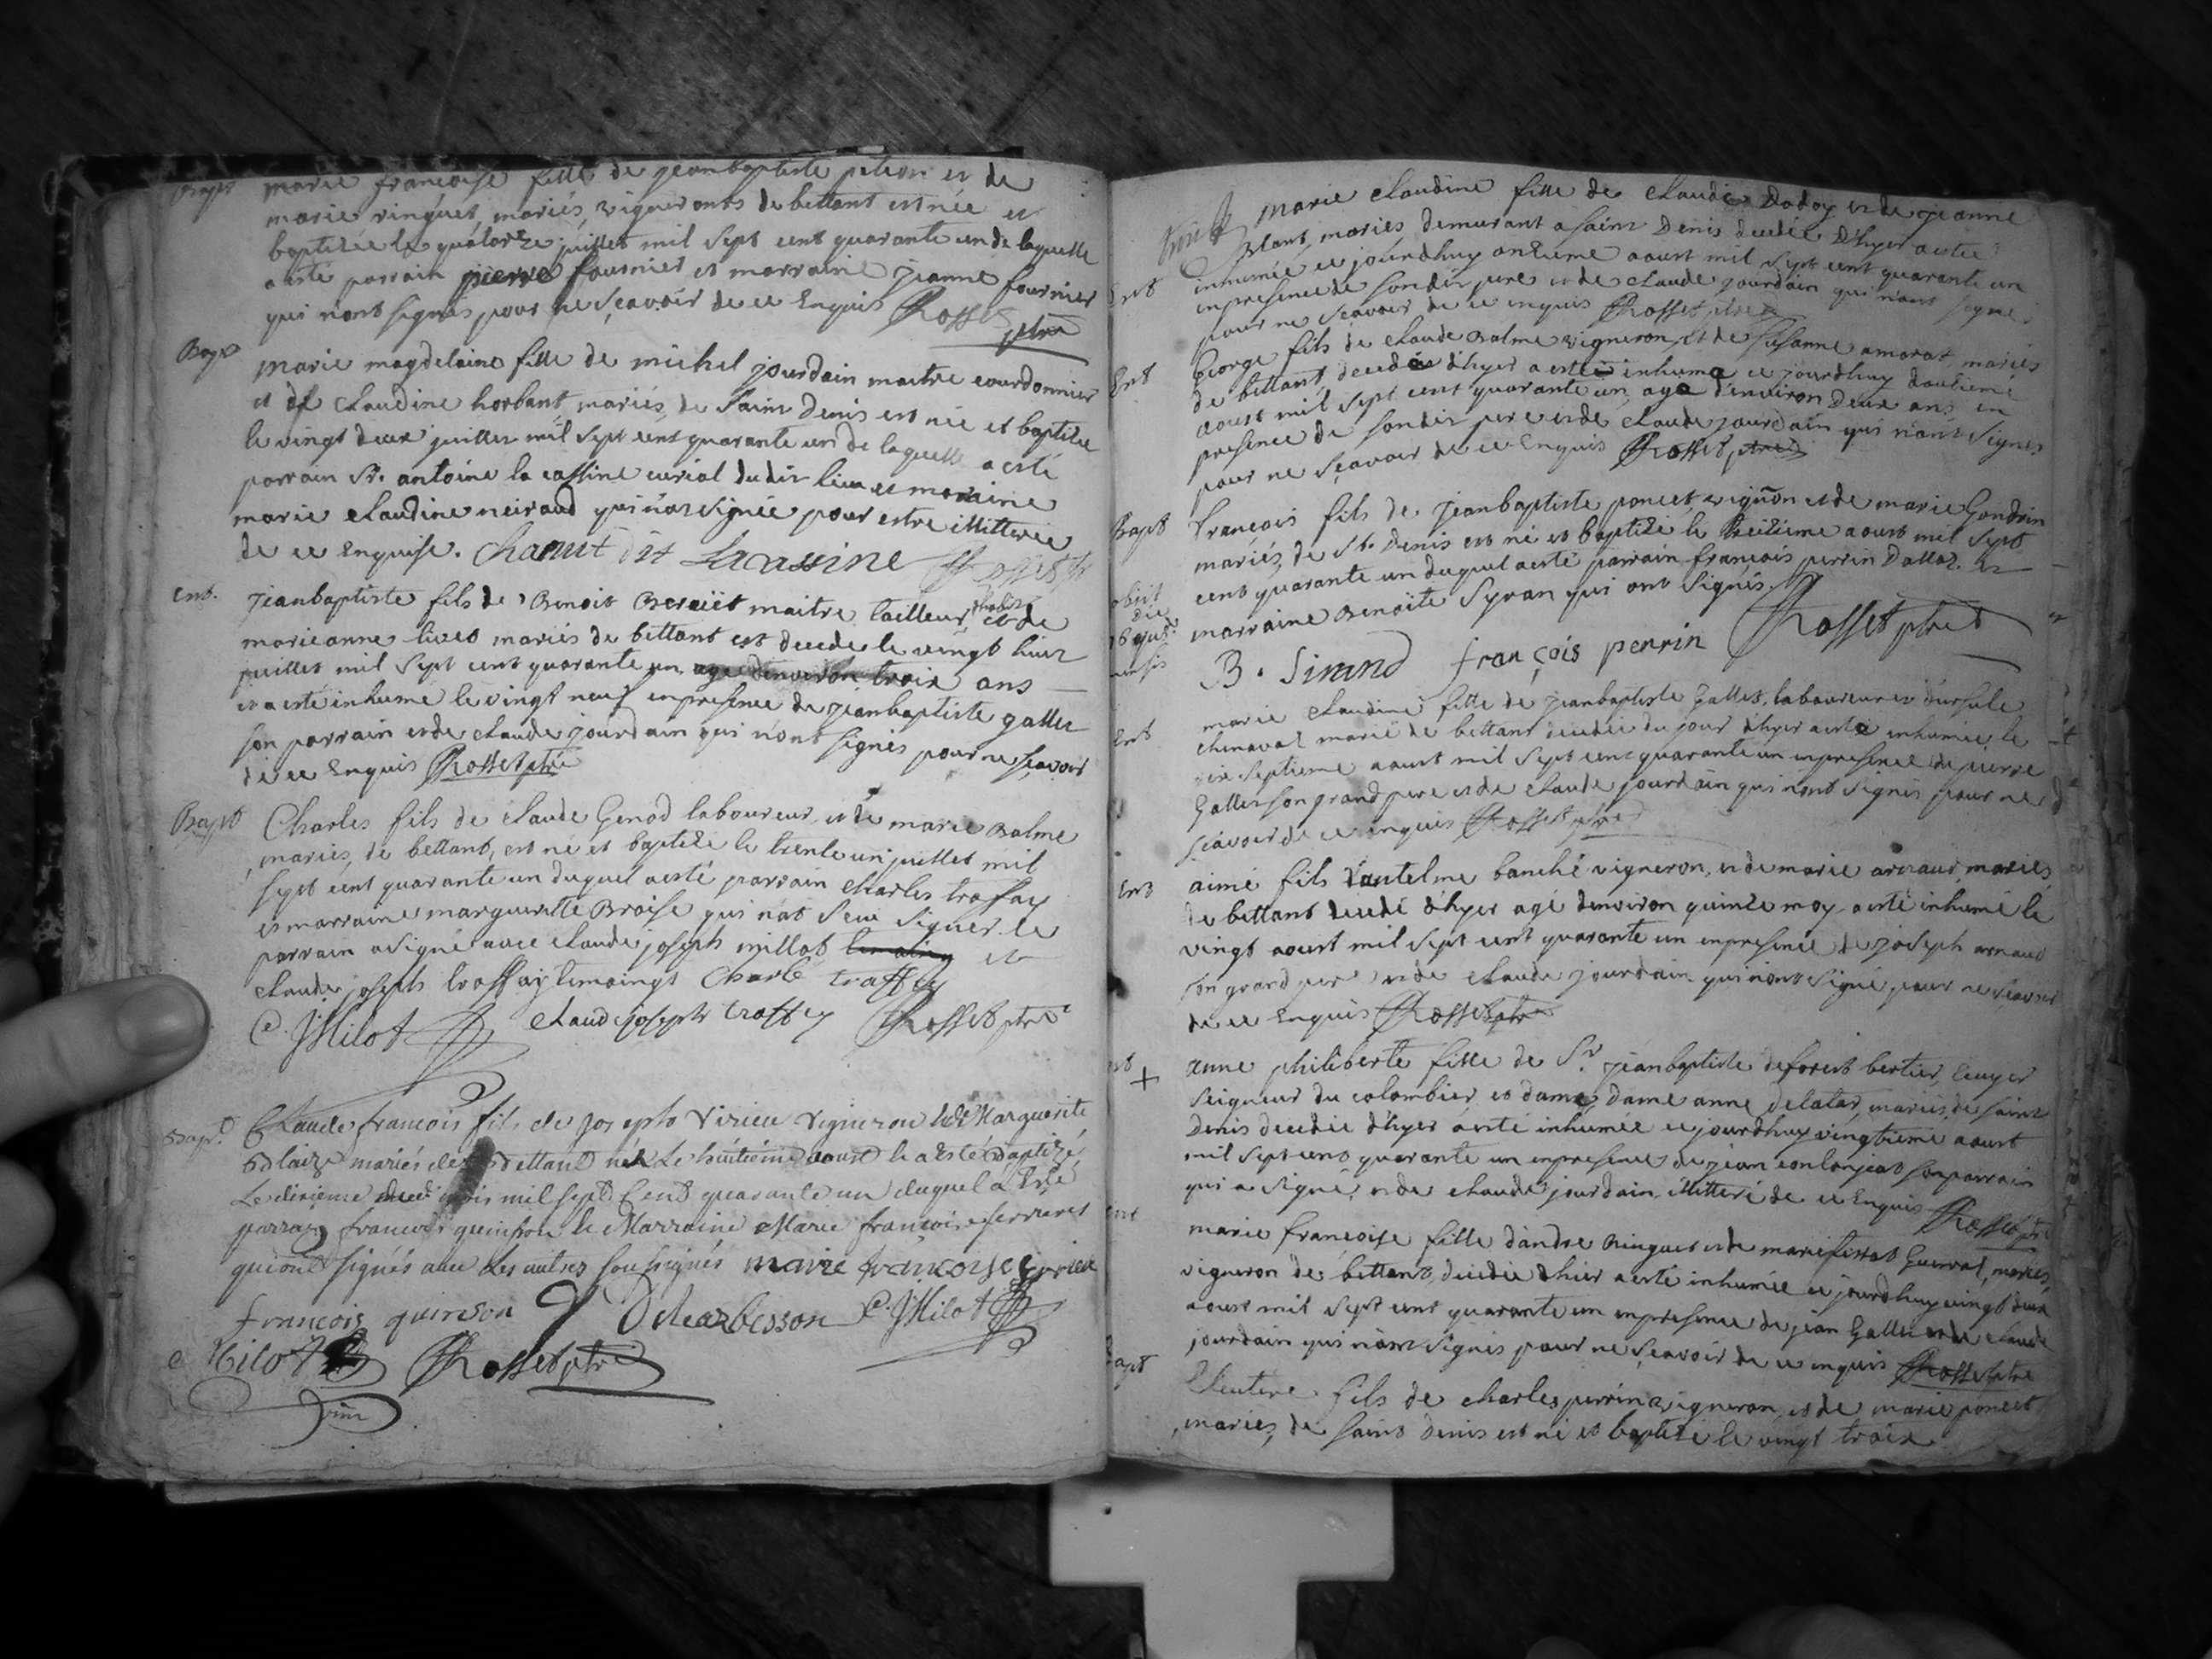 Bapt marie françoise fille de jeanbaptiste et de
marie ringuet, mariés, vignerons de bettant est née et
baptisée le quatorze juillet mil sept cent quarante un de laquelle
a esté parrain pierre fournier et marraine jeanne fournier
qui n'ont signés pour ne sçavoir de ce Enquis Rosset
ptre
Bapt marie magdelaine fille de michel jourdain maitre courdonnier
et de claudine horbant, mariés, de saint Denis est née et baptisée
le vingt deux juillet mil sept cent quarante un de laquelle a esté
parrain Sr. antoine la cassine curial dudit lieu et marraine
marie claudine neiraud qui n'at signée pour estre illitterée
de ce Enquise. Chanut dit Lacassine
Ent. jeanbaptiste fils de Benoit maitre tailleur et de
marieanne mariés de bettant est decede le vingt huit
juillet mil sept cent quarante un age denviron trois ans
et a esté inhumé le vingt neuf enpresence de jeanbaptiste gallet
son parrain et de claude jourdain qui n'ont signés pour ne sçavoir
de ce Enquis Rosset ptre
Bapt Charles fils de claude Genod laboureur et de marie Balme
mariés, de bettant, est né et baptizé le trente un juillet mil
sept cent quarante un duquel a esté parrain charles traffay
et marraine margueritte Broise qui n'at sceu signer le
parrain a signé avec claude joseph millot et
claude joseph traffay temoings Charle traffey
C. J Milot claude joseph traffey Rosset ptre
Bapt. Claude francois fils de Joseph Virieu vigneron et de Marguerite
mariés de Bettant né le huitieme aoust et a esté baptizé
Le dixieme mil sept Cent quarante un duquel a Esté
parrain francois quinson et Marraine Marie francoise
qui ont signés avec Les autres soussignés marie francoise
francois quinson C. J Milot
Milot Rosset ptre
marie claudine fille de claude Dadoy et de jeanne
plant, mariés, demurant a saint Denis decedée d'hyer a esté
Ent inhumée ce jourdhuy onzieme aoust mil sept cent quarante un
enpresence de sondit pere et de claude jourdain qui n'ont signé
pour ne sçavoir de ce enquis Rosset ptre
Ent George fils de claude Balme vigneron, et de susanne amorat, mariés
de bettant, decedé d'hyer a esté inhumé ce jourdhuy douzieme
aoust mil sept cent quarante un, age d'environ deux ans en
presence de sondit pere et de claude jourdain qui n'ont signés
pour ne sçavoir de ce Enquis Rosset ptre
Bapt françois fils de jeanbaptiste poncet vigñon et de marie Gondrin
mariés, de St. Denis est né et baptizé le treizieme aoust mil sept
cent quarante un duquel a esté parrain françois perrin Dallaz et
obiit die 16 marraine Benoite Syran qui ont signés. Rosset ptre
B. Sirand françois perrin
Ent marie claudine fille de jeanbaptiste Gallet, laboureur et d'ursule
chenaval mariés de bettant decedée du jour d'hyer a esté inhumée le
dix septieme aoust mil sept cent quarante un enpresence de pierre
Gallet son grand pere et de claude jourdain qui n'ont signés pour ne
sçavoir de ce enquis Rosset ptre
Ent aimé fils d'antelme banché vigneron, et de marie arnaud, mariés
de bettant decedé d'hyer agé denviron quinze moy a esté inhumé le
vingt aoust mil sept cent quarante un enpresence de joseph arnaud
son grand pere et de claude jourdain qui n'ont signé pour ne sçavoir
de ce Enquis Rosset ptre
Ent + anne philiberte fille de Sr. jeanbaptiste deforest bertier, Ecuyer
Seigneur du colombier et dame, dame anne delatar, mariés, de saint
Denis decedée d'hyer a esté inhumée ce jourdhuy vingtieme aoust
mil sept cent quarante un enpresence de jean conlonjeat son parrain
qui a signé, et de claude jourdain illitteré de ce Enquis Rosset ptre
Ent marie françoise fille d'andre Ringuet et de marie Guerrat, mariés,
vigneron de bettant, decedée d'hier a esté inhumée ce jourdhuy vingt deux
aoust mil sept cent quarante un enpresence de jean Gallet et de claude
jourdain qui n'ont signés pour ne sçavoir de ce enquis Rosset ptre
Bapt Eleutere fils de charles perrin vigneron, et de marie poncet
mariés, de saint denis est né et baptizé le vingt trois